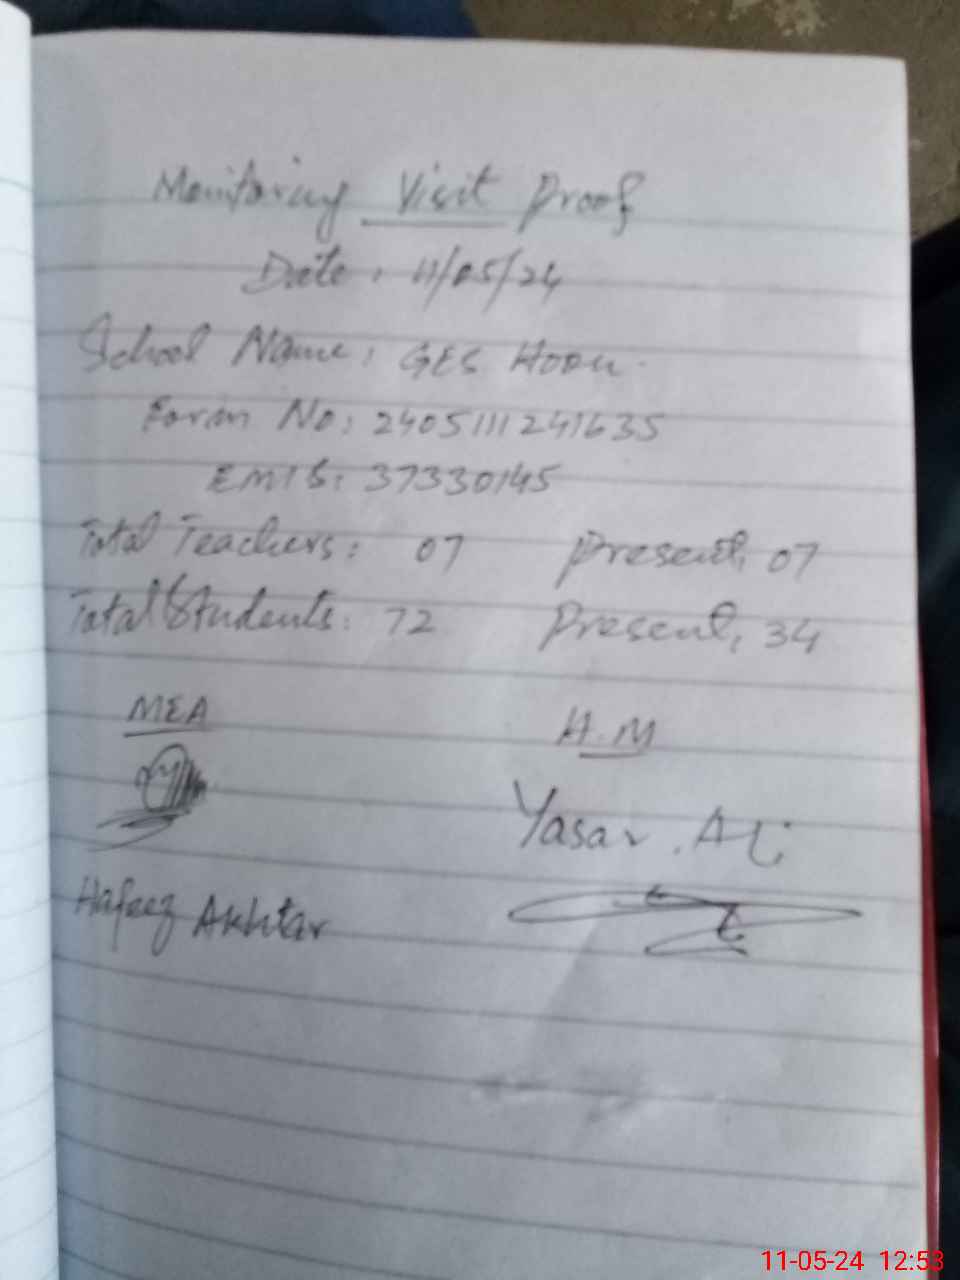 Monitoring Visit Proof
Date: 11/05/24
School Name: GES Hoon
Form No: 2405111241635
EMIS: 37330145
Total Teachers: 07 Present, 07
Total Students: 72 Present, 34
MEA H.M
Yasar Ali
Hafeez Akhtar
11-05-24 12:53